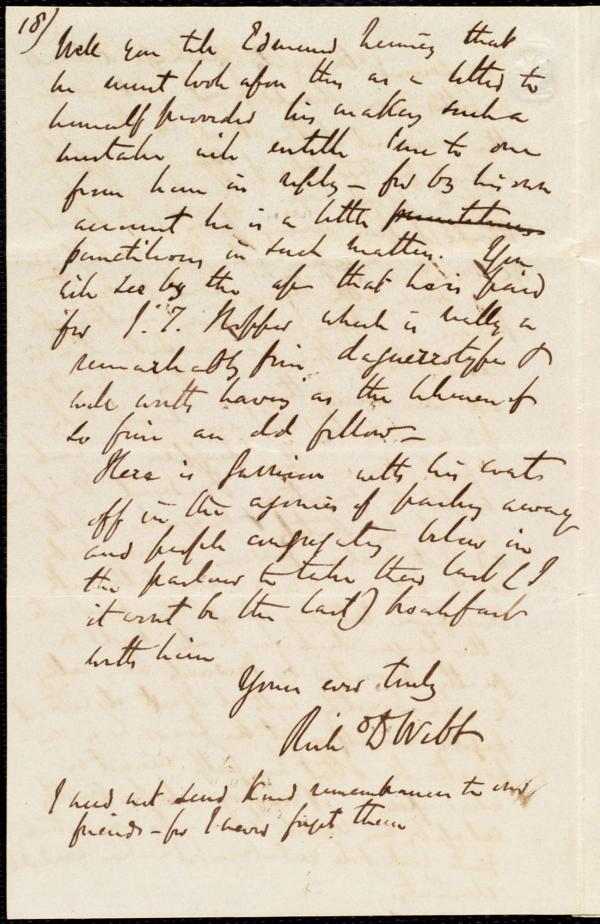 18)
Will you tell Edmund Quincy that
he must look upon this as a letter to
himself provided his making such a
mistake will entitle me to one
from him in reply – for by his own
account he is a little punctilious
punctilious in such matters. You
will see by the  that he is paid
for I. T. Hopper which is really a
remarkably fine daguerrotype &
well worth having as the likeness of
so fine an old fellow –
Here is Garrison with his coats
off in the agonies of packing away
and people congregating below in
the parlour to take their last (I
it wont be the last) breakfast
with him
Yours ever truly
Richd D Webb
I need not send kind remembrances to our
friends – for I never forget them